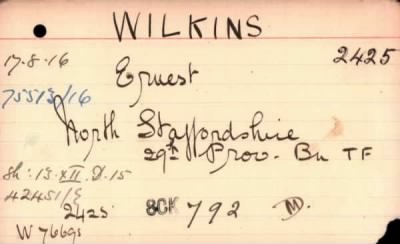 WILKINS
17.8.16 Ernest 2425
75513/16
North Staffordshire
29th Prov. Bn TF
Sh: 15.XII.D.15
42451/E
2425 8CK 792 D.
W 7669s